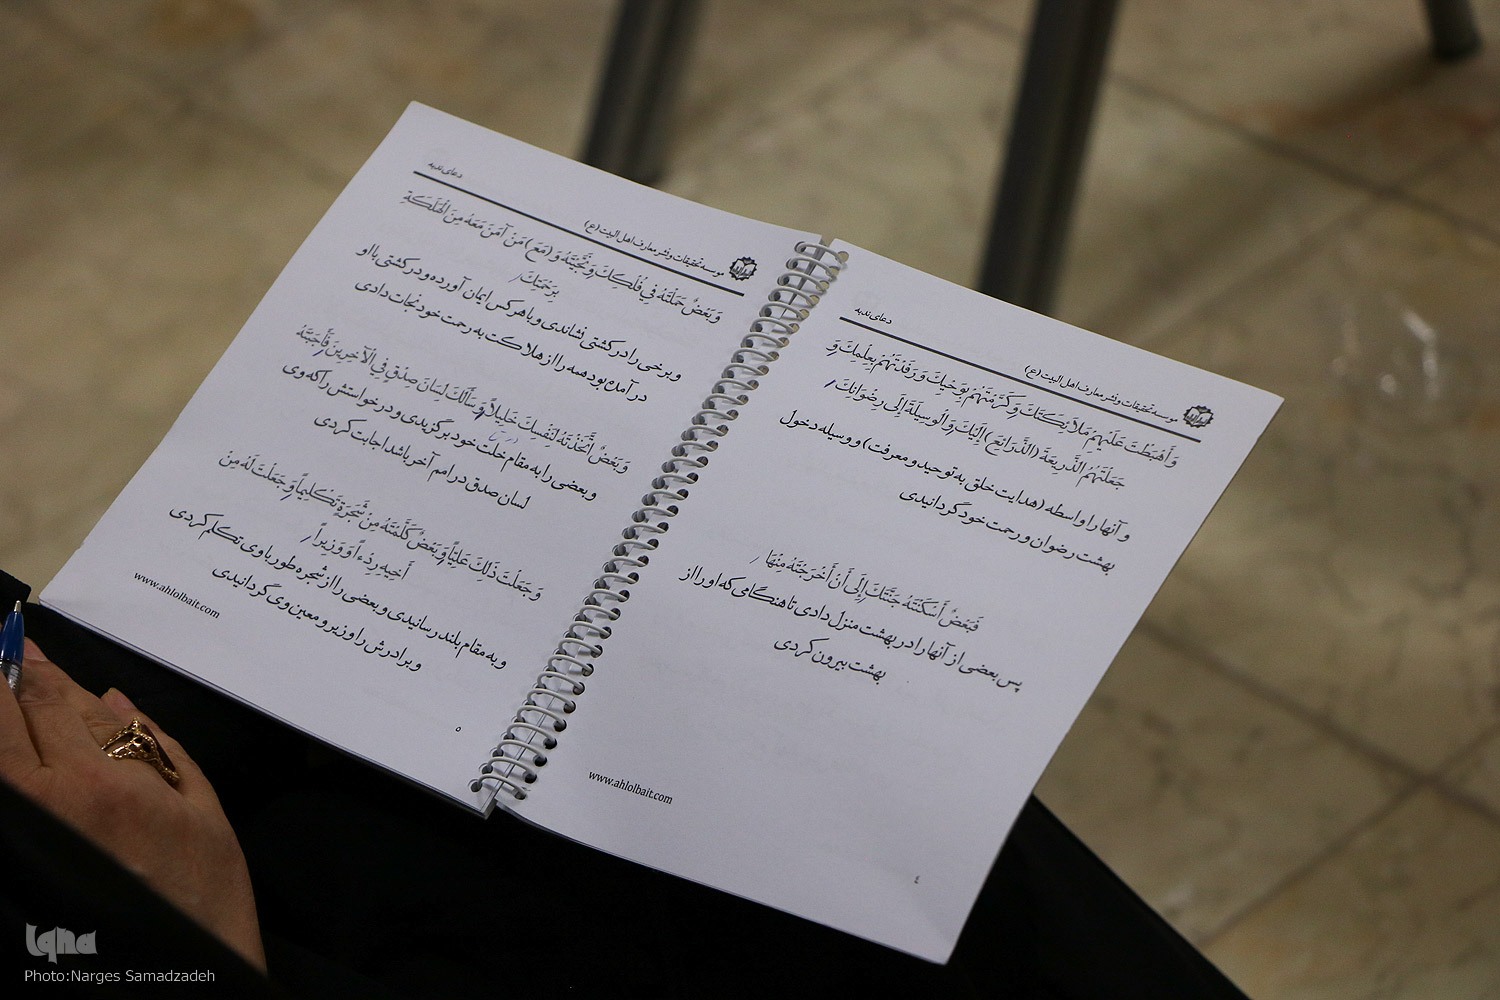 موسسه تحقیقات و نشر معارف اهل البیت (ع)
دعای ندبه
وَ أَهْبَطْتَ عَلَيْهِمْ مَلاَئِكَتَكَ وَ كَرَّمْتَهُمْ بِوَحْيِكَ وَ رَفَدْتَهُمْ بِعِلْمِكَ وَ
جَعَلْتَهُمُ الذَّرِيعَةَ (الذَّرَائِعَ) إِلَيْكَ وَ الْوَسِيلَةَ إِلَى رِضْوَانِكَ
و آنها را واسطه (هدایت خلق به توحید و معرفت) و وسیله دخول
بهشت رضوان و رحمت خود گردانیدی
فَبَعْضٌ أَسْكَنْتَهُ جَنَّتَكَ إِلَى أَنْ أَخْرَجْتَهُ مِنْهَا
پس بعضی از آنها را در بهشت منزل دادی تا هنگامی که او را از
بهشت بیرون کردی
www.ahlolbait.com
٤
موسسه تحقیقات و نشر معارف اهل البیت (ع)
دعای ندبه
وَ بَعْضٌ حَمَلْتَهُ فِي فُلْكِكَ وَ نَجَّيْتَهُ وَ (مَعَ) مَنْ آمَنَ مَعَهُ مِنَ الْهَلَكَةِ
بِرَحْمَتِكَ
و برخی را در کشتی نشاندی و با هر کس ایمان آورده و در کشتی با او
در آمده بود همه را از هلاکت به رحمت خود نجات دادی
وَ بَعْضٌ اتَّخَذْتَهُ لِنَفْسِكَ خَلِيلاً وَ سَأَلَكَ لِسَانَ صِدْقٍ فِي الْآخِرِينَ فَأَجَبْتَهُ
و بعضی را به مقام خلت خود برگزیدی و درخواستش را که وی
لسان صدق در امم آخر باشد اجابت کردی
وَ جَعَلْتَ ذَلِكَ عَلِيّاً وَ بَعْضٌ كَلَّمْتَهُ مِنْ شَجَرَةٍ تَكْلِيماً وَ جَعَلْتَ لَهُ مِنْ
أَخِيهِ رِدْءاً وَ وَزِيراً
و به مقام بلند رسانیدی و بعضی را از شجره طور با وی تکلم کردی
و برادرش را وزیر و معین وی گردانیدی
www.ahlolbait.com
٥
Iqna
Photo:Narges Samadzadeh